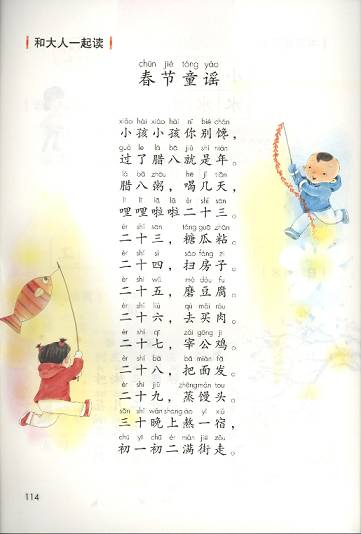 和大人一起读
chūn jié tóng yáo
春节童谣
xiǎo hái xiǎo hái nǐ bié chán
小孩小孩你别馋，
guò le là bā jiù shì nián
过了腊八就是年。
là bā zhōu hē jǐ tiān
腊八粥，喝几天，
lī lī lā lā èr shí sān
哩哩啦啦二十三。
èr shí sān táng guā zhān
二十三，糖瓜粘。
èr shí sì sǎo fáng zi
二十四，扫房子。
èr shí wǔ mò dòu fu
二十五，磨豆腐。
èr shí liù qù mǎi ròu
二十六，去买肉。
èr shí qī zǎi gōng jī
二十七，宰公鸡。
èr shí bā bǎ miàn fā
二十八，把面发。
èr shí jiǔ zhēng mán tou
二十九，蒸馒头。
sān shí wǎn shang áo yì xiǔ
三十晚上熬一宿，
chū yī chū èr mǎn jiē zǒu
初一初二满街走。
114